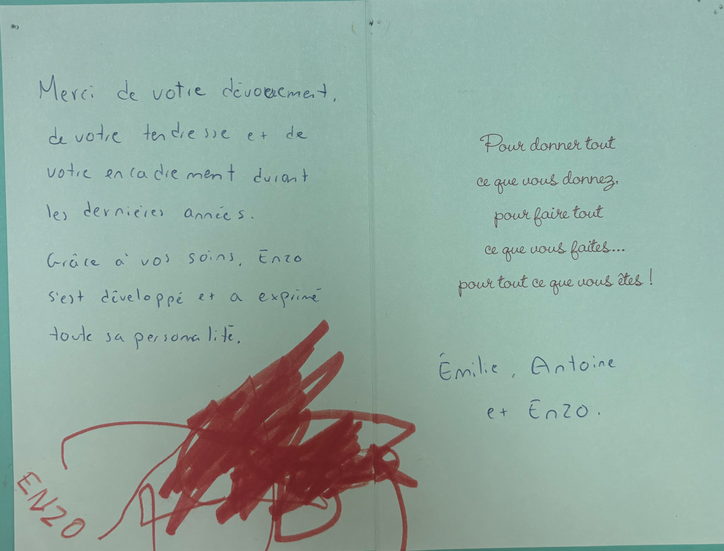 Merci de votre dévouement,
de votre tendresse et de
votre encadrement durant
les dernières années.
Grâce à vos soins, Enzo
s'est développé et a exprimé
toute sa personalité.
ENZO
Pour donner tout
ce que vous donnez,
pour faire tout
ce que vous faites...
pour tout ce que vous êtes !
Émilie, Antoine
et Enzo.